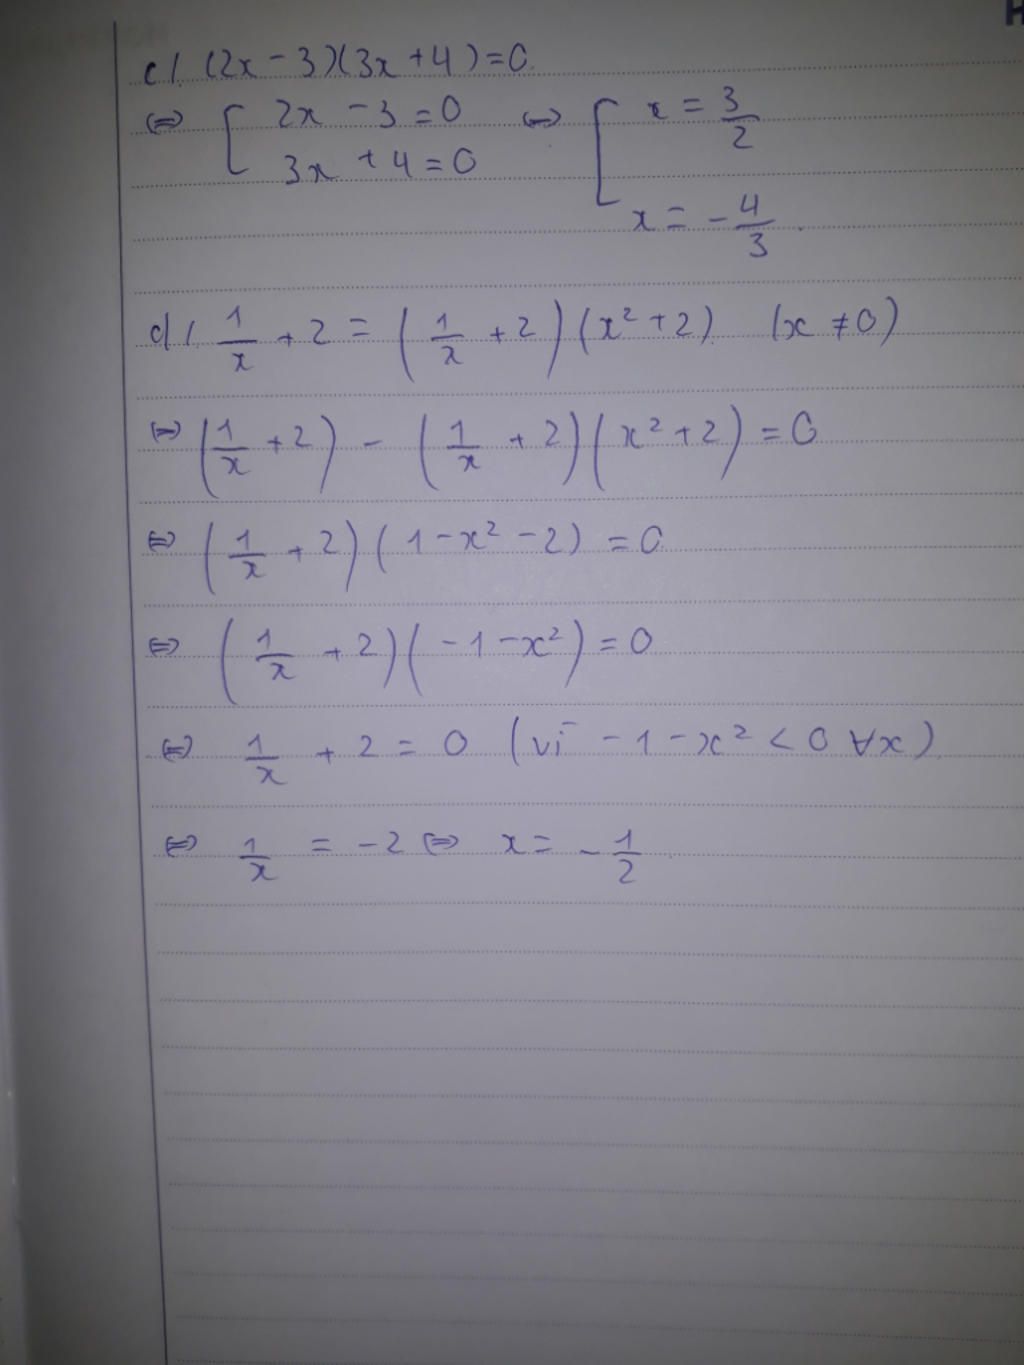 c/. (2x - 3)(3x + 4) = 0.
⇔ [ 2x - 3 = 0 ⇔ [ x = 3/2
3x + 4 = 0
x = - 4/3.
d/. 1/x + 2 = (1/x + 2)(x² + 2) (x ≠ 0)
⇔ (1/x + 2) - (1/x + 2)(x² + 2) = 0
⇔ (1/x + 2)(1 - x² - 2) = 0
⇔ (1/x + 2)(-1 - x²) = 0
⇔ 1/x + 2 = 0 (vì -1 - x² < 0 ∀x)
⇔ 1/x = -2 ⇔ x = - 1/2